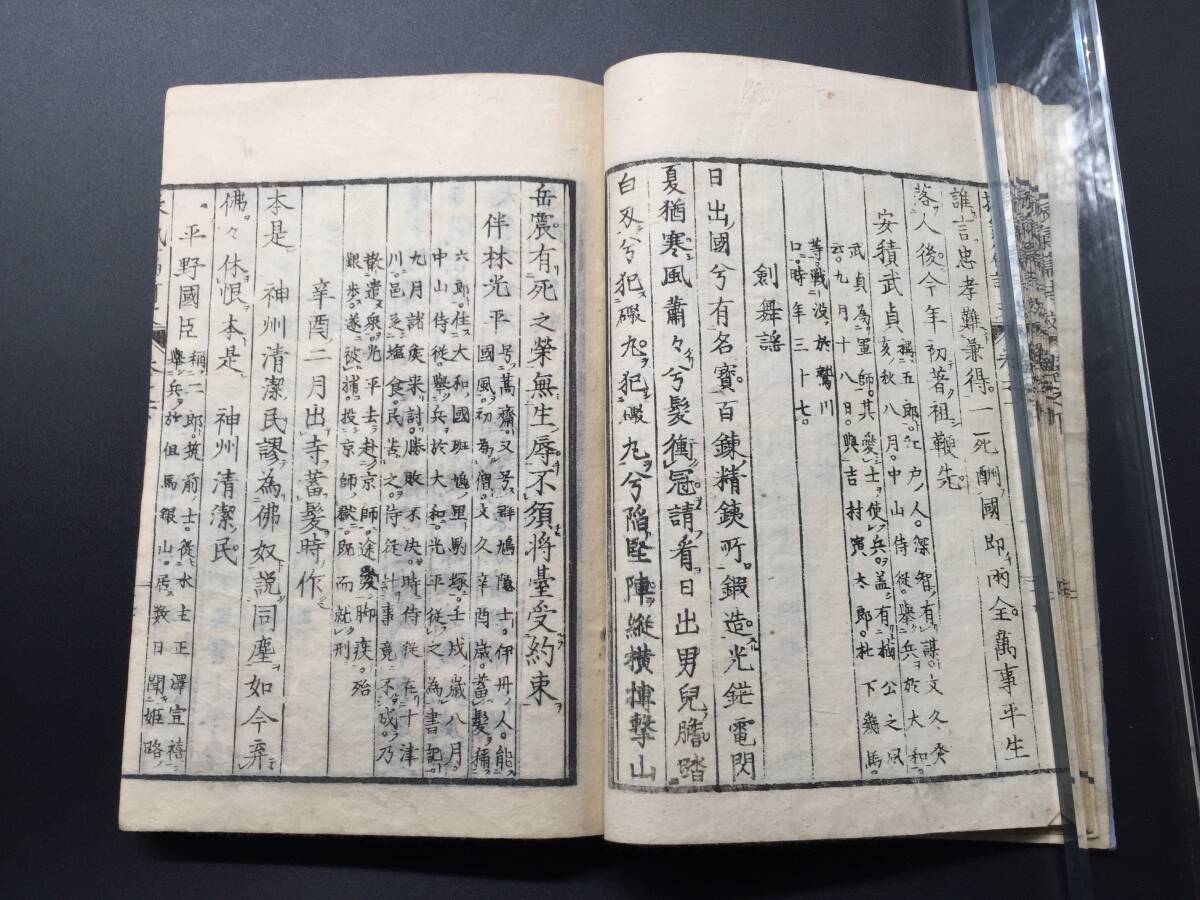 誰言忠孝難兼得一死酬國即兩全萬事平生
落人後今年初著祖鞭先
安積武貞稱五郎江戶人深智有謀文久癸
亥秋八月中山侍從舉兵於大和
武貞為軍師其愛士使兵蓋有楠公之風
云九月十八日與吉村寅太郎杜下幾馬
等戰没於鷲川
口時年三十七
劍舞謠
日出國兮有名寶百鍊精鐵所鍛造光鋩電閃
夏猶寒風蕭々兮髮衝冠請看日出男兒膽踏
白刄兮犯礟丸犯礟丸兮陷堅陣縱橫揮擊山
岳震有死之榮無生辱不須將臺受約束
伴林光平号蒿齋又号斑鳩隱士伊丹人能
國風初為僧文久辛酉歲蓄髮稱
六郎住大和國班鳩里駒塚壬戌歲八月
中山侍從舉兵於大和光平從之為書記
九月諸侯來討勝敗不决時侍從在十津
川邑乏塩食民苦之侍從計事竟不成乃
散遣衆光平去赴京師途愛脚疾殆
艱步遂被捕投京師獄既而就刑
辛酉二月出寺蓄髮時作
本是 神州清潔民謬為佛奴説同塵如今弃
佛々休恨本是 神州清潔民
平野國臣稱二郎筑前士從水主正澤宣禧
舉兵於但馬銀山居幾日聞姬路